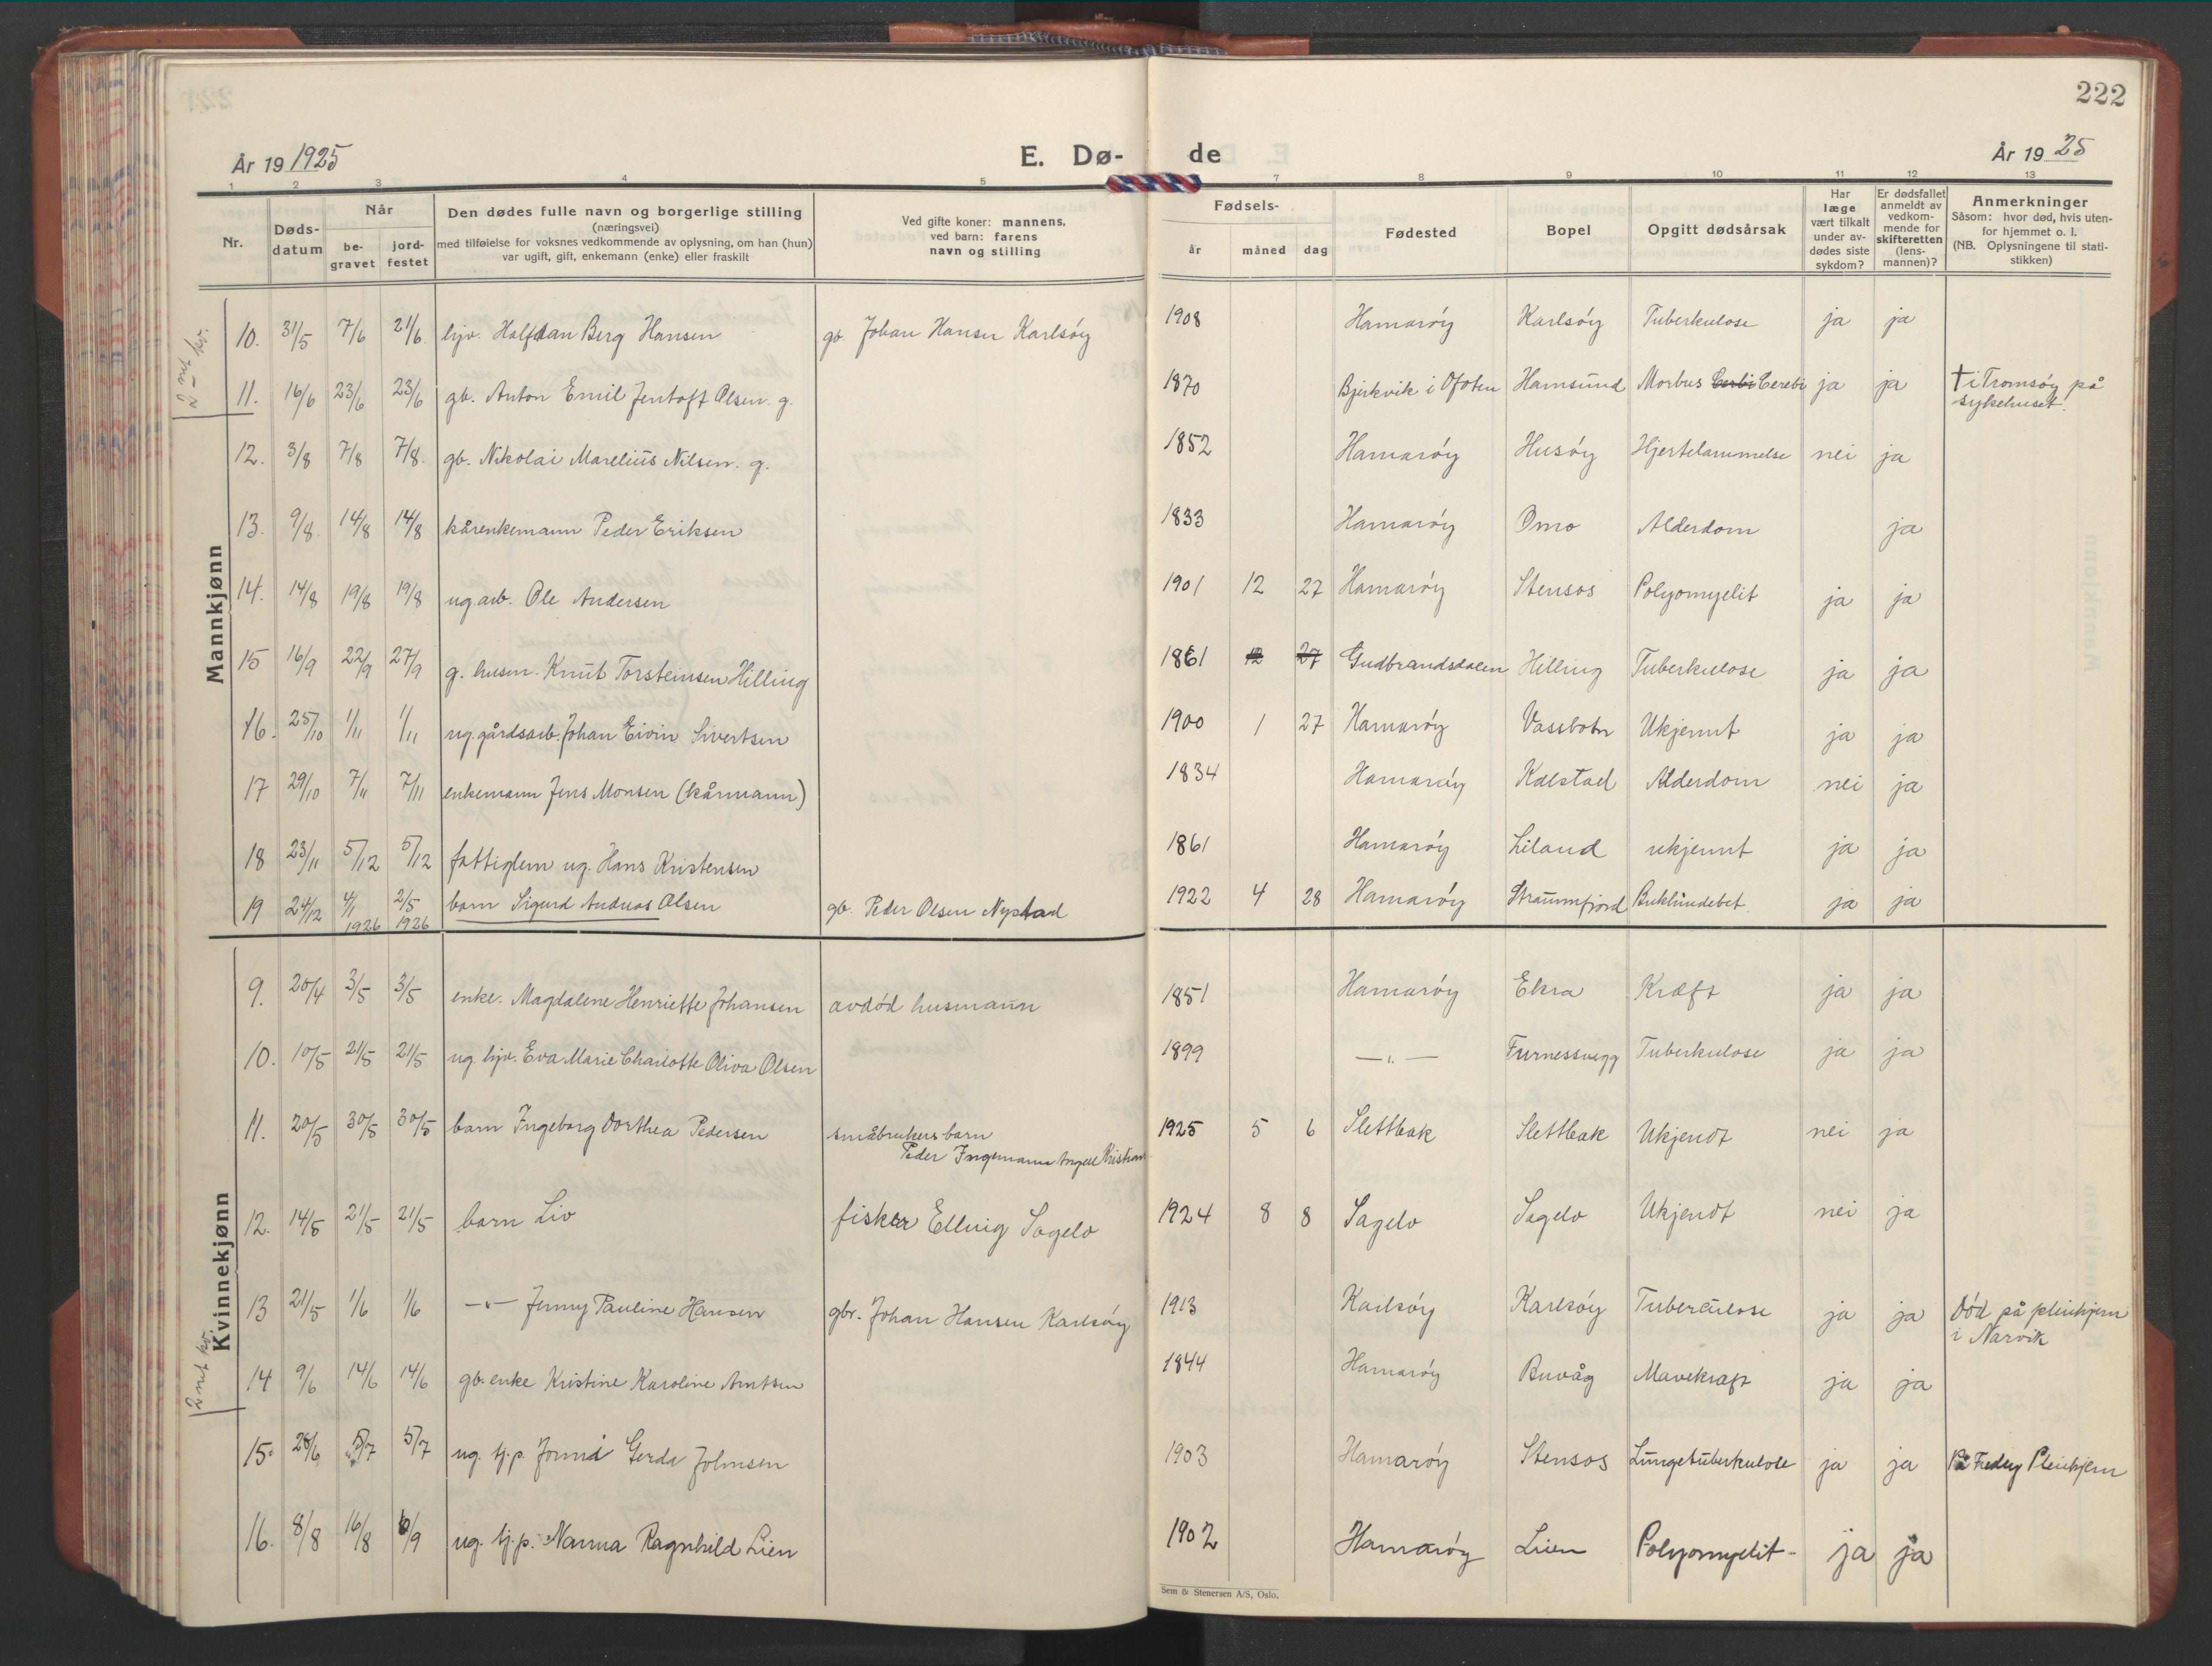 222
År 19 1925
E. Dø-
de
År 19 25
1 2 3 4 5 7 8 9 10 11 12 13
Nr.
Døds-
datum
Når
be-
gravet
jord-
festet
Den dødes fulle navn og borgerlige stilling
(næringsvei)
med tilføielse for voksnes vedkommende av oplysning, om han (hun)
var ugift, gift, enkemann (enke) eller fraskilt
Ved gifte koner: mannens,
ved barn: farens
navn og stilling
Fødsels-
år måned dag
Fødested
Bopel
Opgitt dødsårsak
Har
læge
vært tilkalt
under av-
dødes siste
sykdom?
Er dødsfallet
anmeldt av
vedkom-
mende for
skifteretten
(lens-
mannen)?
Anmerkninger
Såsom: hvor død, hvis uten-
for hjemmet o. l.
(NB. Oplysningene til stati-
stikken)
Mannkjønn
10. 31/5 7/6 21/6. hjv. Halfdan Berg Hansen gb. Johan Hansen Karlsöy 1908 Hamaröy Karlsöy Tuberkulose ja ja
11. 16/6 23/6 23/6 gb. Anton Emil Jentoft Olsen. g. 1870 Bjerkvik i Ofoten Hamsund Morbus Cerbi Cerebi ja ja † i Tromsöy på
sykehuset.
12. 3/8 7/8 7/8. gb. Nikolai Marelius Nilsen. g. 1852 Hamaröy Husöy Hjertelammelse nei ja
13. 9/8. 14/8 14/8 kårenkemann Peder Eriksen 1833 Hamaröy Omo Alderdom ja
14. 14/8 19/8 19/8 ug. arb. Ole Andersen 1901 12 27 Hamaröy Stensos Polyomyelit ja ja
15 16/9 22/9 27/9 g. husm. Knut Torsteinsen Hilling 1861 12 27 Gudbrandsdalen Hilling Tuberkulose ja ja
16. 25/10 1/11 1/11 ug. gårdsarb. Johan Eivin Sivertsen 1900 1 27 Hamaröy Vassbotn Ukjennt ja ja
17 29/10 7/11 7/11 enkemann Jens Monsen (kårmann) 1834 Hamaröy Kalstad Alderdom nei ja
18 23/11 5/12 5/12 fattiglem ug. Hans Kristensen 1861 Hamaröy Liland ukjennt ja ja
19 24/12 4/1 1926 2/5 1926 barn Sigurd Andreas Olsen gb. Peder Olsen Nystad 1922 4 28 Hamaröy Straumfjord Buklindebet ja ja
Kvinnekjønn
9. 20/4 3/5 3/5 enke. Magdalene Henriette Johansen avdöd husmann 1851 Hamaröy Ekra Kræft ja ja
10. 10/5 21/5 21/5 ug. hjv. Eva Marie Charlotte Oliva Olsen 1899 —"— Furnessvegg Tuberkulose ja ja
11. 20/5 30/5 30/5 barn Ingeborg Dorthea Pedersen småbrukers barn
Peder Ingemann Angell Kristian 1925 5 6 Slettbak Slettbak Ukjendt nei ja
12. 14/5 21/5 21/5 barn Liv fisker Elling Sagelv 1924 8 8 Sagelv Sagelv Ukjendt nei ja
13 21/5 1/6 1/6 —"— Jenny Pauline Hansen gbr. Johan Hansen Karlsöy 1913 Karlsöy Karlsöy Tuberculose ja ja Död på pleiehjem
i Narvik
14 9/6 14/6 14/6 gb. enke Kristine Karoline Arntsen 1844 Hamaröy Buvåg Mavekræft ja ja
15. 28/6 5/7 5/7 ug. tj.p. Gerda Johnsen 1903 Hamaröy Stensos Lungetuberkulose ja ja På Pleiehjem
16. 8/8 16/8 6/9 ug. tj.p. Nanna Ragnhild Lien 1902 Hamaröy Lien Polyomyelit ja ja
Sem & Stenersen A/S, Oslo.